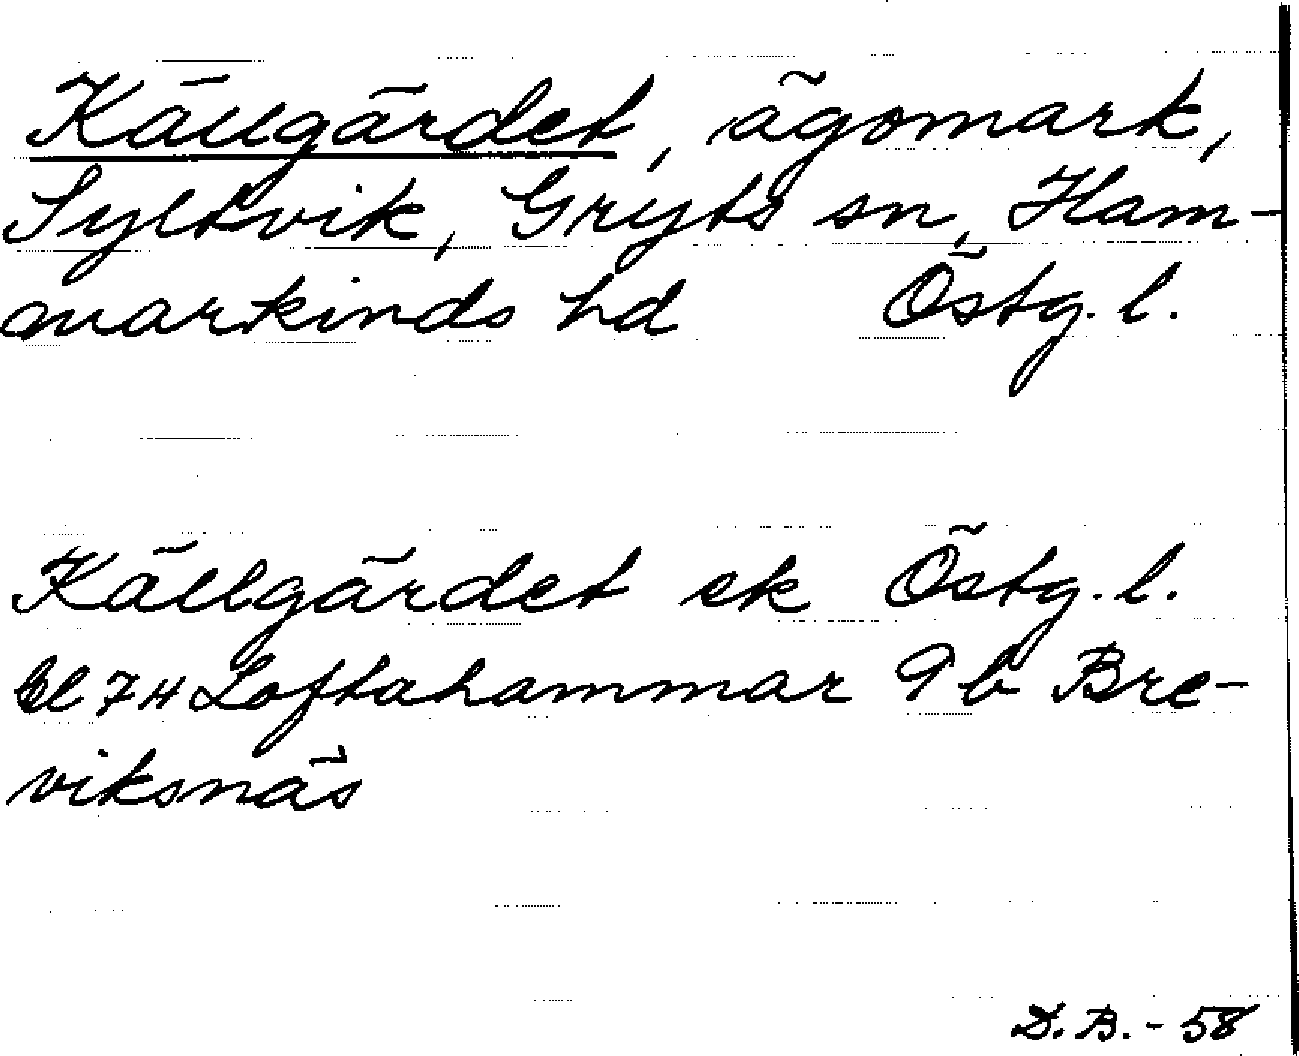 Källgärdet, ägomark,
Syltvik, Gryts sn, Ham-
markinds hd Östg. l.
Källgärdet ek Östg. l.
bl 7H Loftahammar 9 b Bre-
viksnäs
D.B. - 58